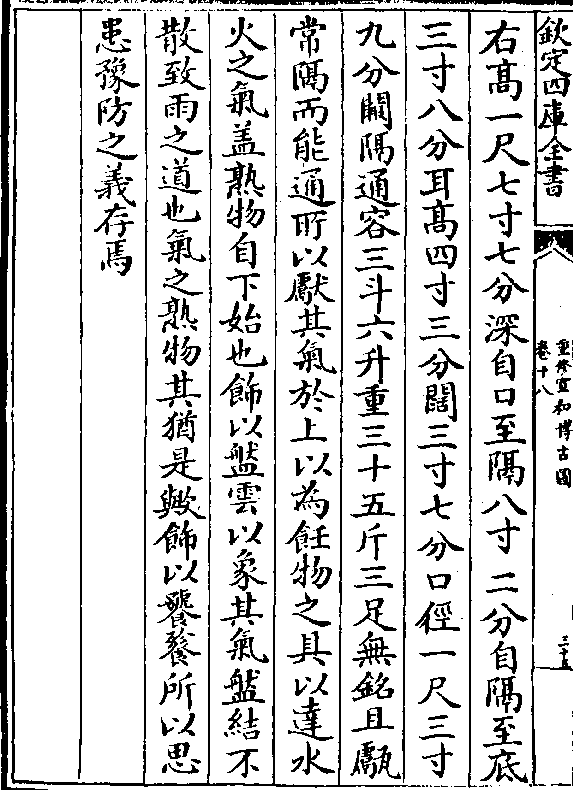 欽定四庫全書
重修宣和博古圖
卷十八
三十五
右髙一尺七寸七分深自口至隔八寸二分自隔至底
三寸八分耳髙四寸三分闊三寸七分口徑一尺三寸
九分闢隔通容三斗六升重三十五斤三足無銘且甗
常隔而能通所以獻其氣於上以為飪物之具以達水
火之氣盖熟物自下始也飾以盤雲以象其氣盤結不
散致雨之道也氣之熟物其猶是歟飾以饕餮所以思
患豫防之義存焉